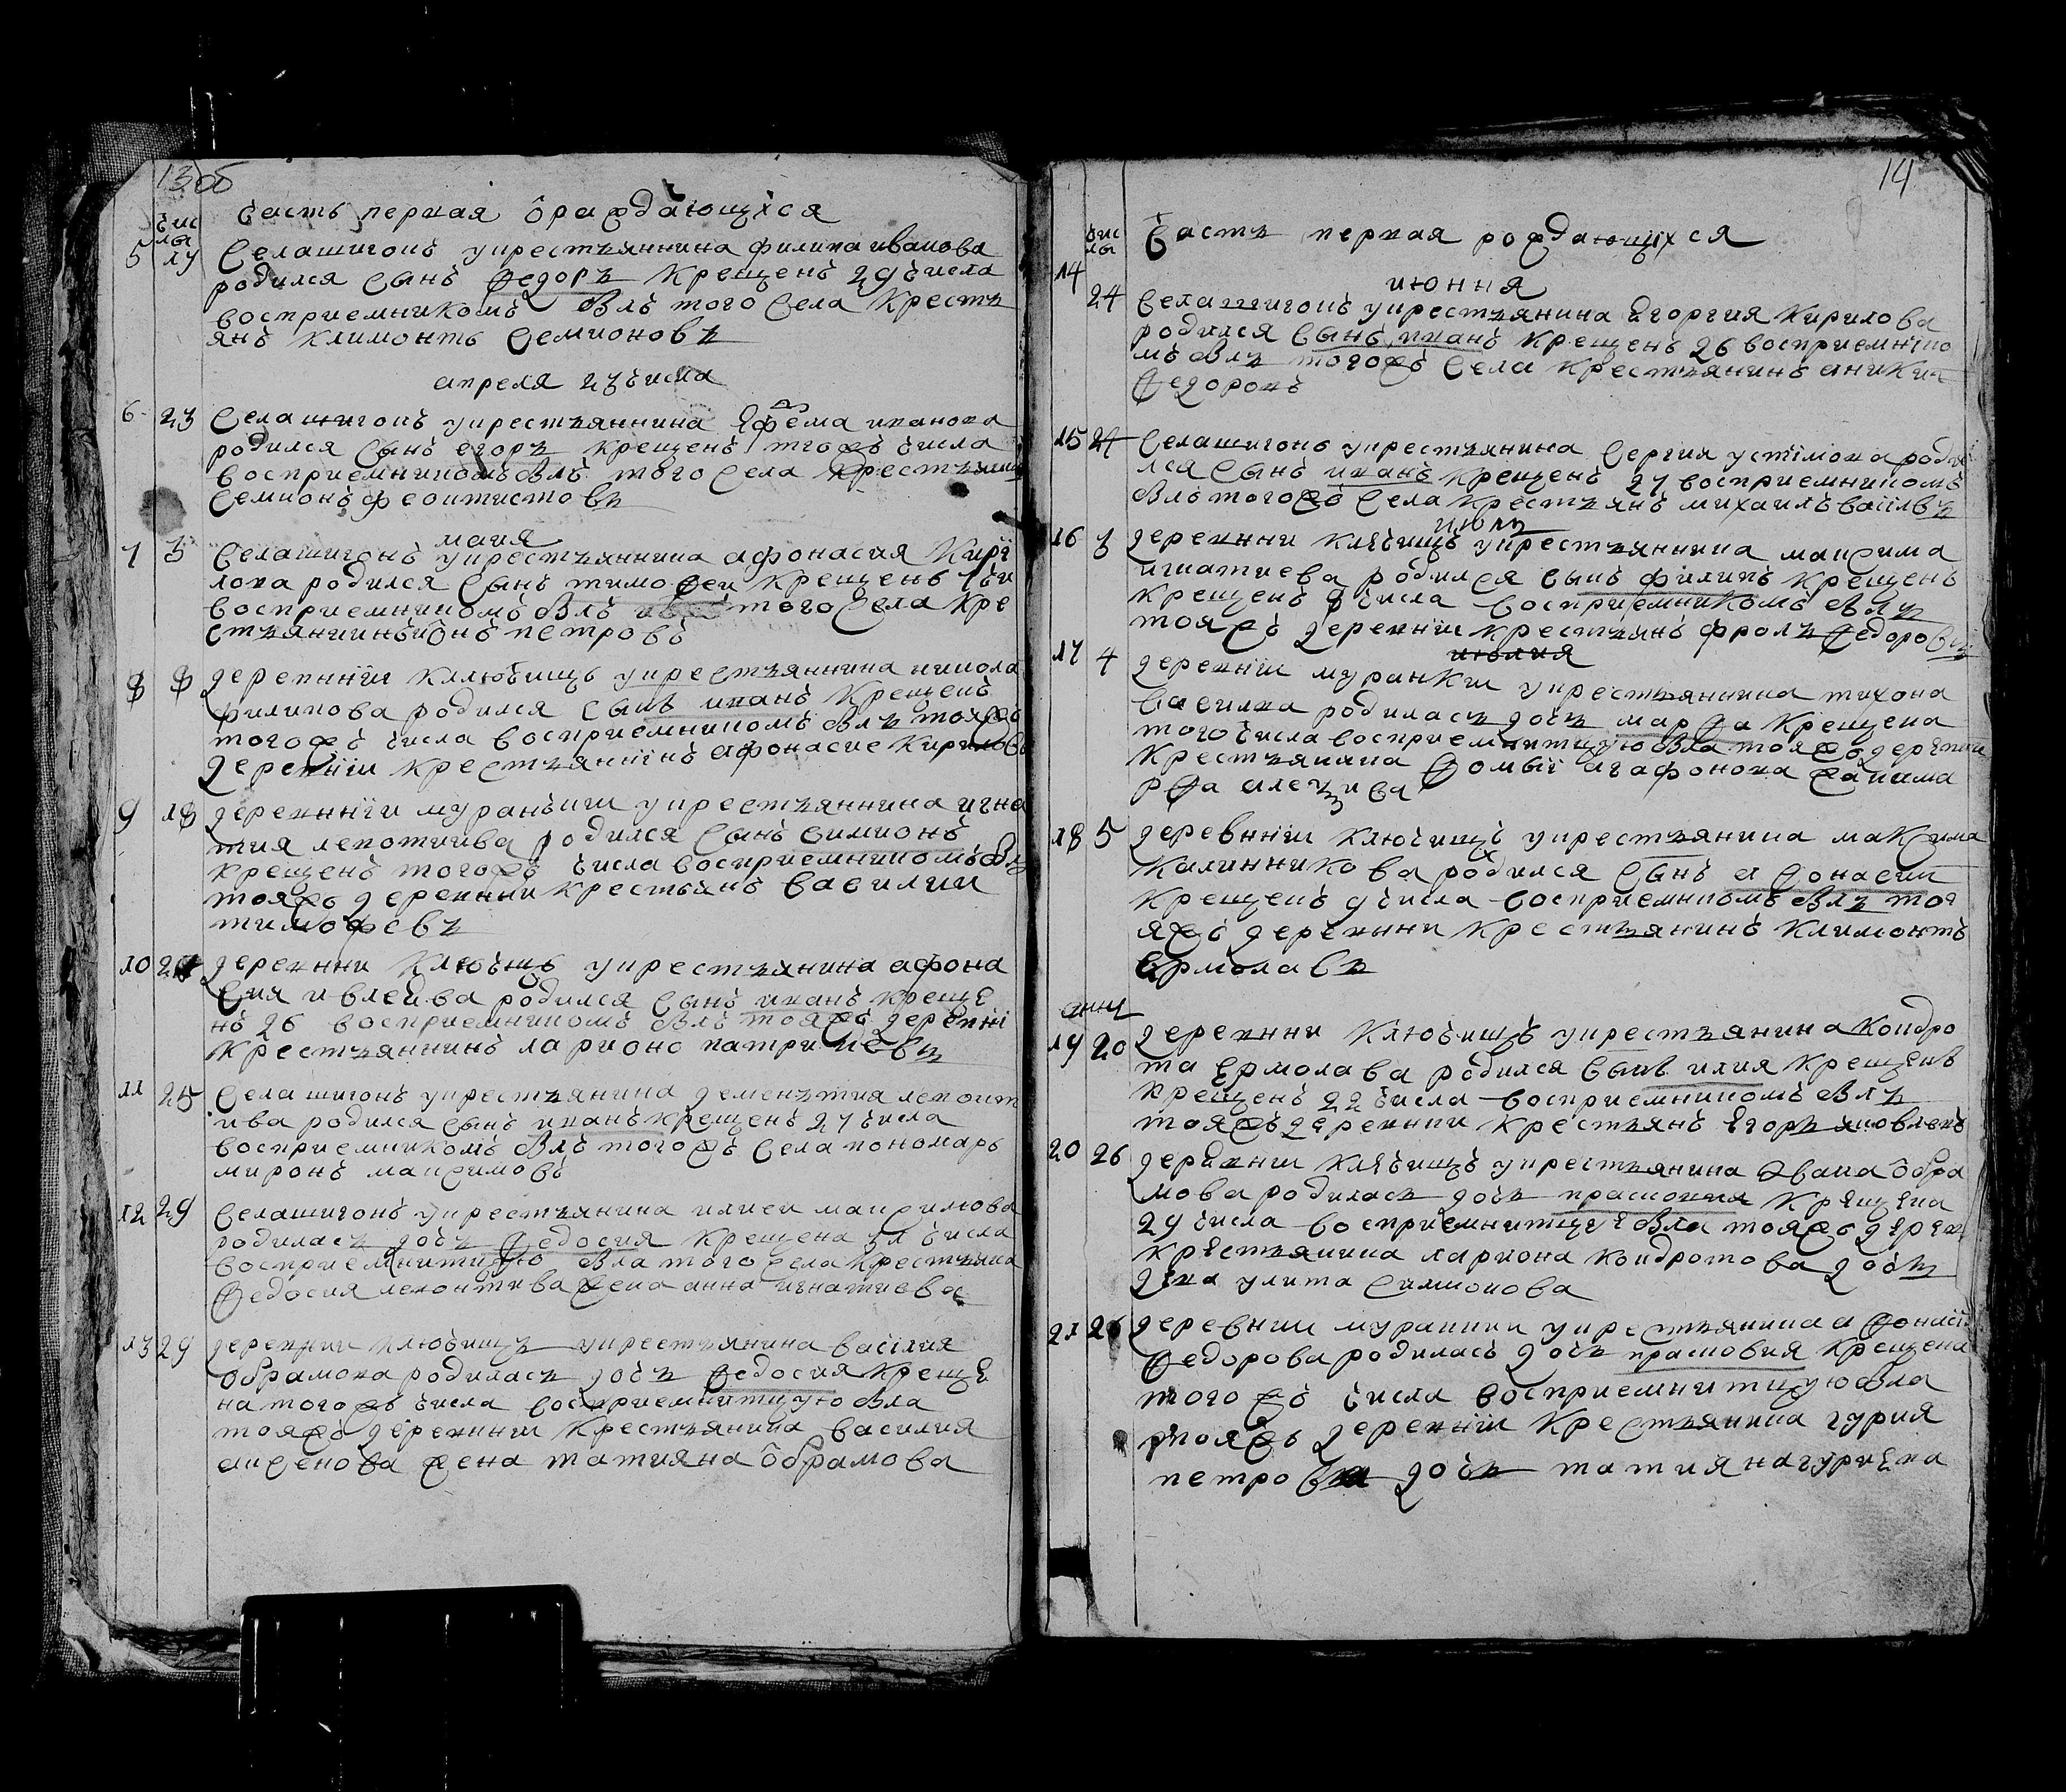 13 об
часть первая ѡ раждающихся
чис
лы
5 19 Села шигонъ у крестьяннина филипа иванова
родился сынъ Ѳедоръ крещенъ 29 числа
восприемникомъ былъ того села кресть
янъ климонтъ Семионовъ
апреля 23 числа
6 23 Села шигонъ у крестьяннина Ефѣма иванова
родился сынъ егоръ крещенъ тогожъ числа
восприемникомъ былъ того села крестьянин
Семионъ феоктистовъ
маия
7 3 Села шигонъ у крестьяннина афонасия Кири
лова родился сынъ тимоѳеи крещенъ
восприемникомъ былъ того села кре
стьянниинъ петровъ
8 8 деревниіи ключищъ у крестьяннина никола
филипова родился сынъ иванъ крещенъ
тогожъ числа восприемникомъ былъ тояжъ
деревніи крестьяниінъ афонасие Кириловъ
9 18 деревнніи муранъки у крестьяннина игна
тия леонтиива родился сынъ симионъ
крещенъ тогожъ числа восприемникомъ былъ
тояжъ деревнии крестьянъ василии
тимофевъ
10 24 деревнии ключищъ у крестьянина афона
сия родился сынъ иванъ креще
нъ 26 восприемникомъ былъ тояжъ деревні
крестьяннинъ ларионо патрикиевъ
11 25 Села шигонъ у крестьянина деменьтия леонт
ива родился сынъ иванъ крещенъ 27 числа
восприемникомъ былъ тогожъ села пономарь
миронъ максимовъ
12 29 Села шигонъ у крестьянина илиеи максимова
родилась дочь Ѳедосия крещена 31 числа
восприемнитицую была того села крестьяна
Ѳедосия леонтива жена анна игнатиева
13 29 деревнии ключищъ у крестьянина василия
обрамова родилась дочь ѳедосия креще
на тогожъ числа восприемнитицую была
тояжъ деревннии крестьянина василия
аксенова жена татияна ѡбрамова
14
чис
лы
часть первая рождающіхся
14
июння
24 Села шигонъ у крестьянина Егоргия Кирилова
родился сынъ иванъ крещенъ 26 восприемніко
мъ былъ тогожъ села крестьянинъ аники
Ѳедоровъ
15 24 Села шигонъ у крестьянина Сергия устімова роди
лся сынъ иванъ крещенъ 27 восприемникомъ
былъ тогожъ села крестьянъ михаилъ васілвъ
июль
16 3 деревнни ключищъ у крестьяннина максима
игнатиева родился сынъ филипъ крещенъ
крещенъ 8 числа восприемникомъ былъ
тояжъ деревніи крестьянъ фролъ ѳедоровъ
июлия
17 4 деревніи муранки у крестьяннина тихона
василва родилась дочь марѳа крещена
того числа восприемнитицую была тояжъ деревнии
крестьянина Ѳомыі агафонова жана ма
рѳа
18 5 деревнніи ключищъ у крестьянина максима
калинникова родился сынъ аѳонасии
крещенъ 9 числа восприемникомъ былъ тоя
яжъ деревнни крестьянинъ климонтъ
ермолавъ
19 20 деревнни ключищъ у крестьянина кондро
та ермолава родился сынъ илия крещенъ
крещенъ 22 числа восприемникомъ былъ
тояжъ деревнии крестьянъ Егоръ яковлевъ
20 26 деревнии ключищъ у крестьянина Ивана ѡбра
мова родилась дочь прасковия крещена
29 числа восприемнитице была тояжъ дерев
крестьянина лариона кондротова дочь
дека улита симионова
21 26 деревнии муранки у крестьянина аѳонасіі
Ѳедорова родилась дочь прасковия крещена
тогожъ числа восприемнитицую была
тояжъ деревніи крестьянина гурия
петрова дочь татияна гуриева